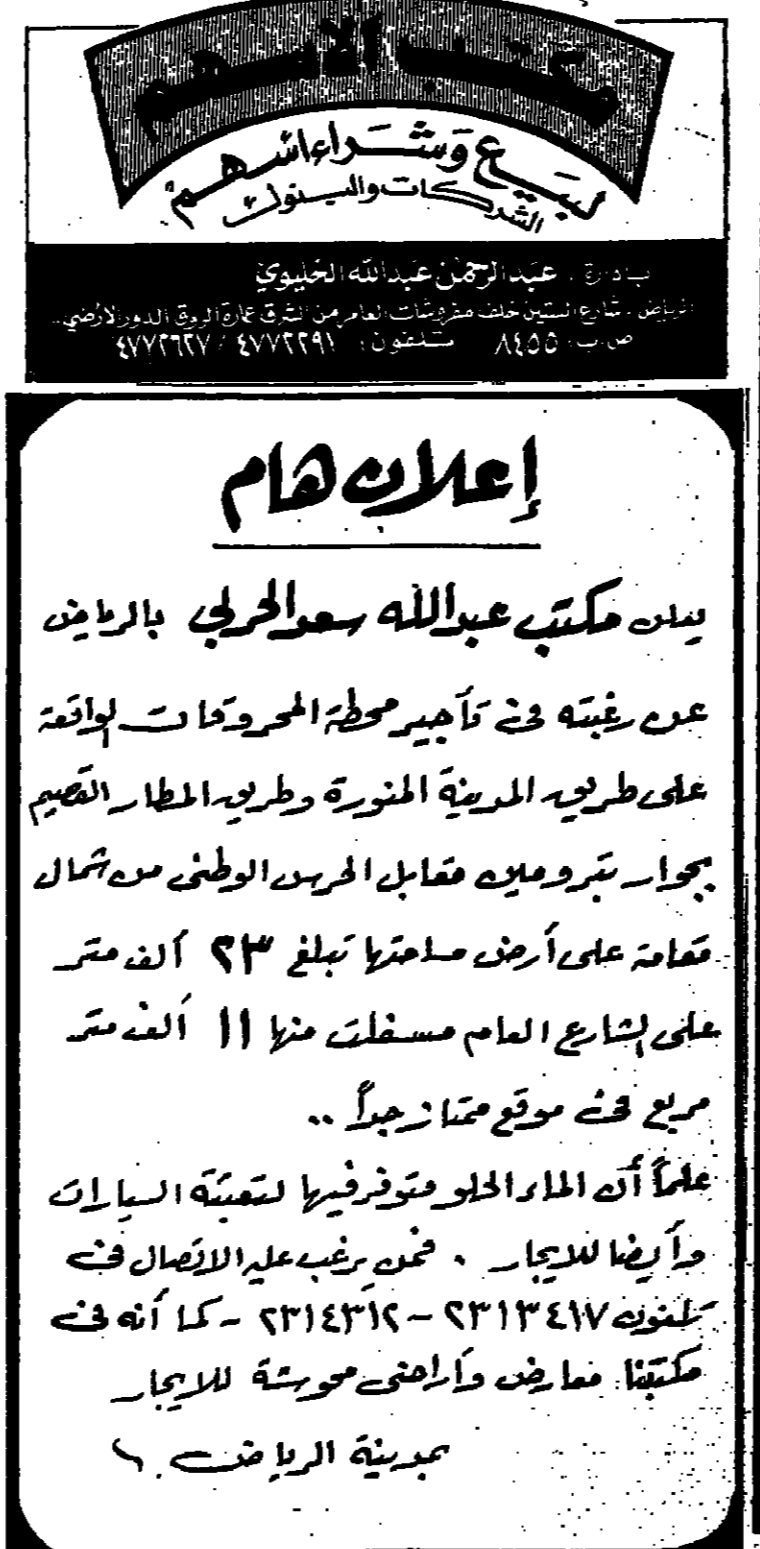 مكتب الاسهم
لبيع وشراء اسهم
الشركات والبنوك
بادارة . عبدالرحمن عبدالله الخليوي
الرياض . شارع الستين خلف مفروشات العامر من الشرق عمارة الروق الدور الارضي..
ص.ب: ٨٤٥٥ تلفون: ٤٧٧٢٢٩١ / ٤٧٧٢٦٢٧
إعلان هام
يعلن مكتب عبدالله سعد الحربي بالرياض
عن رغبته في تأجير محطة المحروقات الواقعة
على طريق المدينة المنورة وطريق المطار القصيم
بجوار بترومين مقابل الحرس الوطني من شمال
مقامة على أرض مساحتها تبلغ ٢٣ ألف متر
على الشارع العام مسفلت منها ١١ ألف متر
مربع في موقع ممتاز جداً ..
علماً أن الماء الحلو متوفر فيها لتعبئة السيارات
وأيضا للايجار . فمن يرغب عليه الاتصال في
تلفون ٢٣١٣٤١٧ - ٢٣١٤٣١٢ - كما أنه في
مكتبنا معارض وأراضي محوشة للايجار
بمدينة الرياض